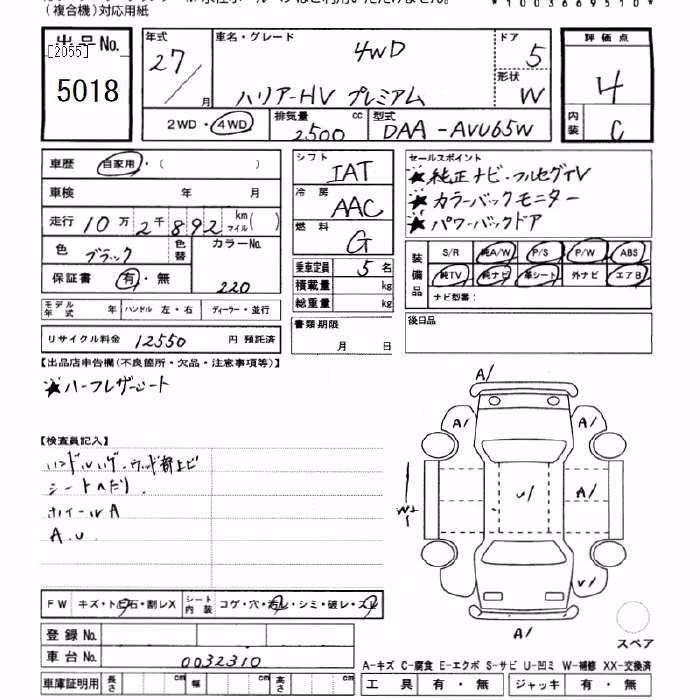 (複合機)対応用紙
出品No.
[2055]
5018
年式
27
月
車名・グレード
4WD
ハリアーHV プレミアム
ドア
5
形状
W
評価点
4
内装
C
2WD・4WD
排気量
2500
cc
型式
DAA-AVU65W
車歴
自家用・( )
車検
年 月
走行
10万2千892
km
マイル( )
色
ブラック
色替
カラーNo.
220
保証書
有・無
モデル年式
年
ハンドル 左・右
ディーラー・並行
リサイクル料金
12550
円 預託済
シフト
IAT
冷房
AAC
燃料
G
乗車定員
5
名
積載量
kg
総重量
kg
書類期限
月 日
セールスポイント
★純正ナビ・フルセグTV
★カラーバックモニター
★パワーバックドア
装備品
S/R
純A/W
P/S
P/W
ABS
純TV
純ナビ
革シート
外ナビ
エアB
ナビ型番:
後日品
【出品店申告欄(不良箇所・欠品・注意事項等)】
★ハーフレザーシート
【検査員記入】
シートヘたり
ホイールA
A.U
A/
A/
A/
W+
U/
A/
A/
FW
キズ・ト
石・割レX
シート内装
コゲ・穴・汚レ・シミ・破レ・スレ
登録No.
車台No.
0032310
スペア
A-キズ C-腐食 E-エクボ S-サビ U-凹ミ W-補修 XX-交換済
車庫証明用
長さ
cm
幅
cm
高さ
cm
工具
有・無
ジャッキ
有・無